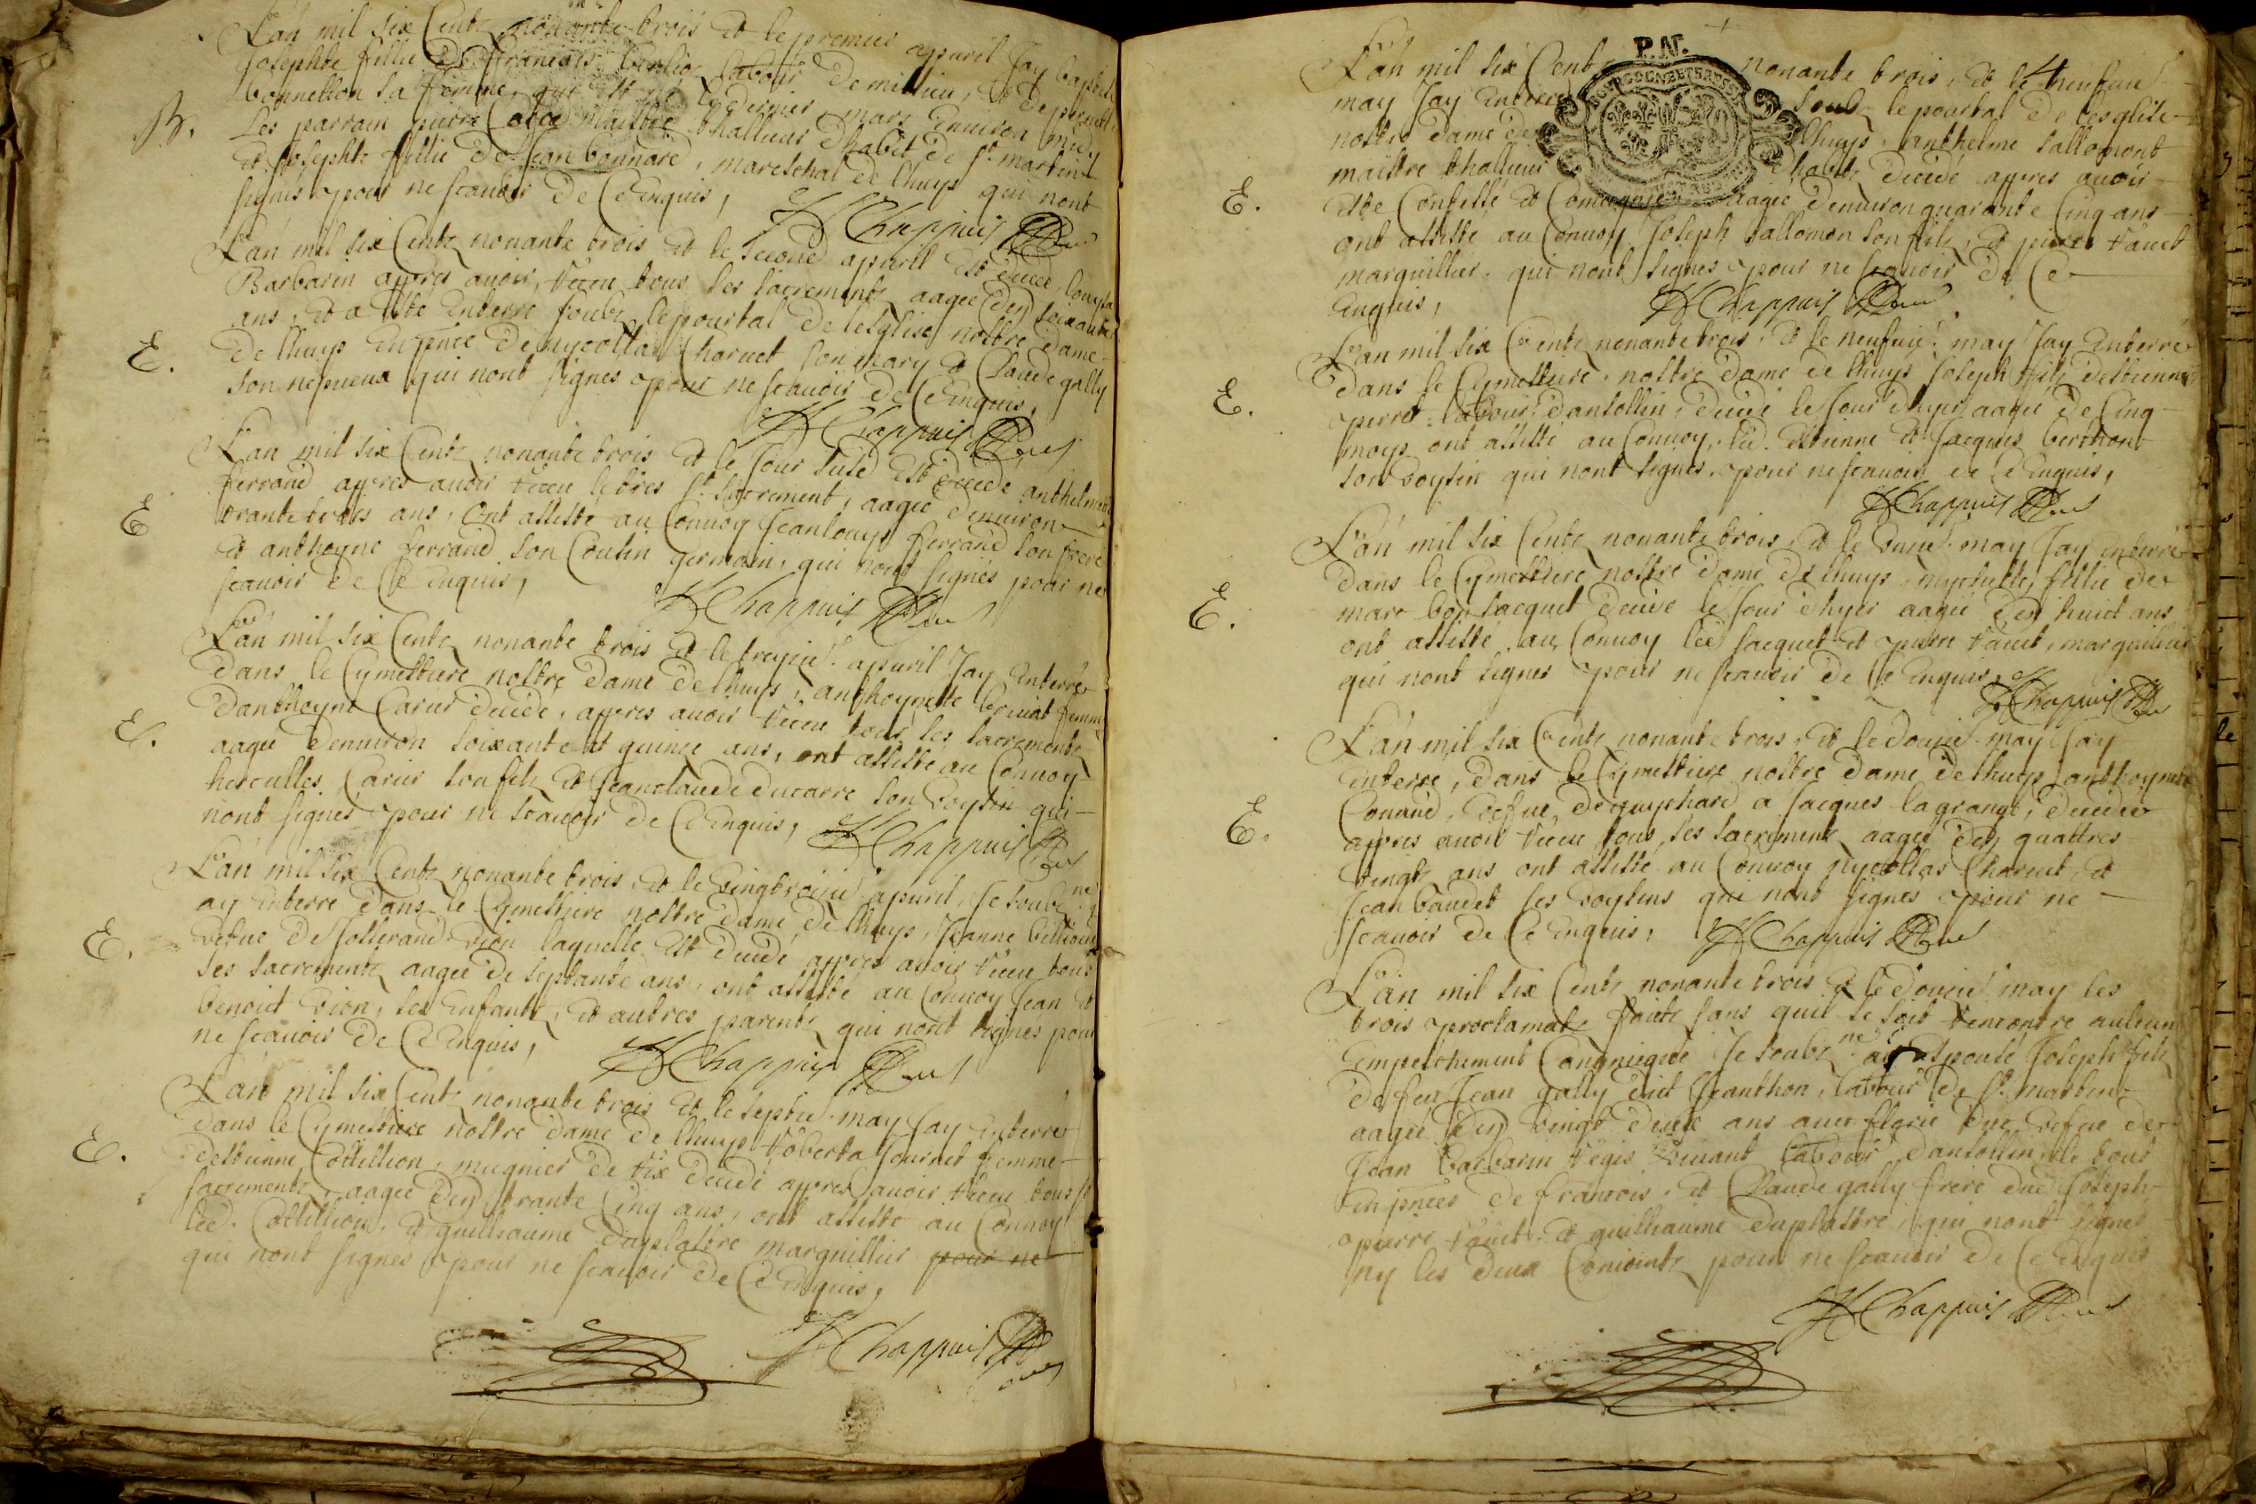 L'an mil six Cents nonante trois et le premier apvril Jay baptisé
Josephte fillie de françois berlioz labour de millieu, et de pernette
bonnetton sa femme, qui est née le dernier mars environ midy
B. Les parrain pierre maistre thallieur d'habit de st. martin
et Josephte fillie de Jean bonnard, mareschal de lhuys qui nont
signés pour ne scavoir de Ce enquis,
H Chappuis Cure
L'an mil six Cents nonante trois et le second apvril est decede, Louyse
Barbarin appres avoir, receu tous les sacrements aagee d'en soixante
ans, et a esté enterre soubz le pourtal de lesglise nostre dame
E. de lhuys en pnce de nycollas Charvet son mary et Claude gally
son nepveux qui nont signes pour ne scavoir de Ce enquis,
H Chappuis Cure
L'an mil six Cents nonante trois et le Jour susd est decede anthelme
ferrand appres avoir receu le tres st. sacrement, aagee d'environ
E trante trois ans, ont assisté au Convoy Jean louys ferrand son frere
et anthoyne ferrand son Cousin germain, qui nont signés pour ne
scavoir de Ce enquis,
H Chappuis Cure
L'an mil six Cents nonante trois et le treizie. apvril Jay enterré
dans le Cymettiere nostre dame de lhuys, anthoynette femme
E. d'anthoyne Carier decede, appres avoir receu tous les sacrements
aagee d'environ soixante et quinze ans, ont assisté au Convoy
herculles Carier son fils et Jean claude ducarre son voysin qui
nont signé pour ne scavoir de Ce enquis,
H Chappuis Cure
L'an mil six Cents nonante trois, et le vingt troizie apvril, Je soubz.né
ay enterre dans le Cymettiere nostre dame de lhuys, Jeanne
E. vefue de vion laquelle est decedé appres avoir receu tous
les sacrements aagee de septante ans, ont assisté au Convoy Jean et
benoict vion, ses enfants, et autres parents qui nont signes pour
ne scavoir de Ce enquis,
H Chappuis Cure
L'an mil six Cents nonante trois et le septie. may Jay enterré
dans le Cymettiere nostre dame de lhuys roberta femme
E. destienne Cottillion, mugnier de rix decede appres avoir receu tous st
sacrements, aagee d'en trante Cinq ans, ont assisté au Convoy
led. Cottillion, et guilliaume duplattre marguillier pour ne
qui nont signes pour ne scavoir de Ce enquis,
H Chappuis Cure
P.N.
L'an mil six Cents nonante trois, et le neufvie
may Jay enterre soubz le pourtal de lesglise
nostre dame de lhuys, anthelme sallomont
maistre thallieur d'habit, decedé appres avoir
E. esté Confessé et Communié aagee d'environ quarante Cinq ans
ont assisté au Convoy Joseph sallomon son fils, et pierre ravet
marguillier, qui nont signes pour ne scavoir de Ce
enquis,
H Chappuis Cure
L'an mil six Cents nonante trois, et le neufvie. may Jay enterré
dans le Cymettiere nostre dame de lhuys Joseph fils destienne
E. perret labour d'ansollin, decedé le Jour d'hyer aagee de Cinq
moys ont assisté au Convoy, led. estienne et Jacques berthon
son voysin qui nont signes pour ne scavoir de Ce enquis,
H Chappuis Cure
L'an mil six Cents nonante trois, et le unzie. may Jay enterré
dans le Cymettiere nostre dame de lhuys, fillie de
E. marc Jacquet decede le Jour d'hyer aagee d'en huict ans
ont assisté au Convoy led Jacquet et pierre ravet, marguillier
qui nont signes pour ne scavoir de Ce enquis,
H Chappuis Cure
L'an mil six Cents nonante trois, et le douzie. may Jay
enterre, dans le Cymettiere nostre dame de lhuys anthoynette
Conand, vefue, de a Jacques lagrange, decedee
E. appres avoir receu tous les sacrements aagee d'en quattres
vingts ans ont assisté au Convoy nycollas Charvet, et
Jean baudet ses voysins qui nont signes pour ne
scavoir de Ce enquis,
H Chappuis Cure
L'an mil six Cents nonante trois et le douzie may les
trois proclamats faicts sans quil se soit rencontre aulcun
empeschement Canonique Je soubz.né ay espousé Joseph fils
de feu Jean gally dict Jeanthon, labour de st. martin
aagee d'en vingt deux ans avec vefue de
Jean Barbarin vivant labour d'ansollin, le tout
en pnces de francois, et Claude gally frere dud Joseph
pierre ravet, et guilliaume duplattre, qui nont signes
ny les deux Conioints pour ne scavoir de Ce enquis
H Chappuis Cure